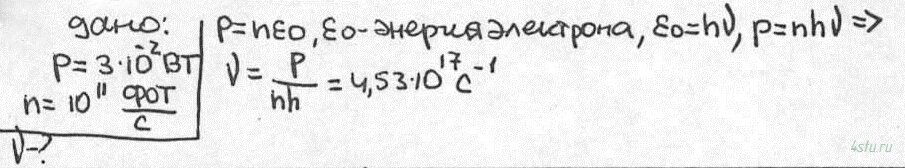 дано:
P = 3·10⁻² Вт
n = 10¹¹ фот/с
ν-?
P = nε₀, ε₀-энергия электрона, ε₀ = hν, p = nhν =>
ν = P/nh = 4,53·10¹⁷ с⁻¹
4stu.ru